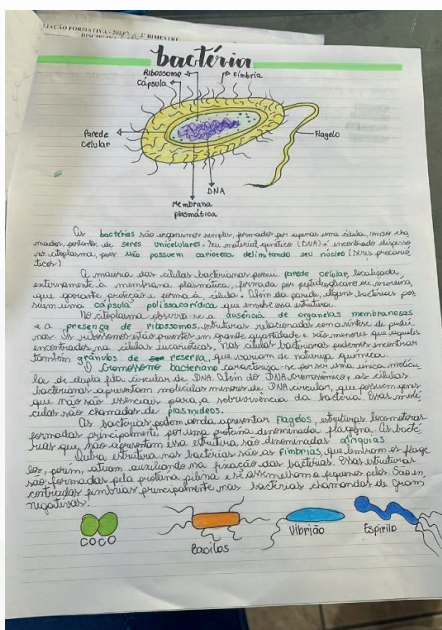 2º BIMESTRE
bactéria
Ribossomo
Fímbria
Cápsula
Parede
celular
Flagelo
DNA
Membrana
plasmática
As bactérias são organismos simples, formados por apenas uma célula, sendo cha
mados, portanto, de seres unicelulares. Seu material genético (DNA) é encontrado disperso
no citoplasma, pois não possuem carioteca delimitando seu núcleo (seres procarió
ticos)
A maioria das células bacterianas possui parede celular, localizada
externamente à membrana plasmática, formada por peptidoglicano ou mureína,
que garante proteção e forma à célula. Além da parede, algumas bactérias pos
suem uma cápsula polissacarídica que envolve essa estrutura.
No citoplasma, observa-se a ausência de organelas membranosas
e a presença de ribossomos, estruturas relacionadas com a síntese de proteí
nas. Os ribossomos estão presentes em grande quantidade e são menores que aqueles
encontrados na células eucarióticas. Nas células bacterianas podemos encontrar
também grânulos de reserva, que variam de natureza química.
O Cromossomo bacteriano caracteriza-se por ser uma única molécu
la de dupla fita circular de DNA. Além do DNA cromossômico, as células
bacterianas apresentam moléculas menores de DNA circular, que possuem genes
que não são essenciais para a sobrevivência da bactéria. Essas molé
culas são chamadas de plasmídeos.
As bactérias podem ainda apresentar flagelos, estruturas locomotoras
formadas principalmente por uma proteína denominada flagelina. As bacté
rias que não apresentam essa estrutura são denominadas atríquias.
Outra estrutura nas bactérias são as fímbrias, que lembram os flage
los, porém, atuam auxiliando na fixação das bactérias. Essas estruturas
são formadas pela proteína pilina e se assemelham a pequenos pelos. São en
contradas fímbrias principalmente nas bactérias chamadas de gram
negativas.
COCO
Bacilos
Vibrião
Espirilo